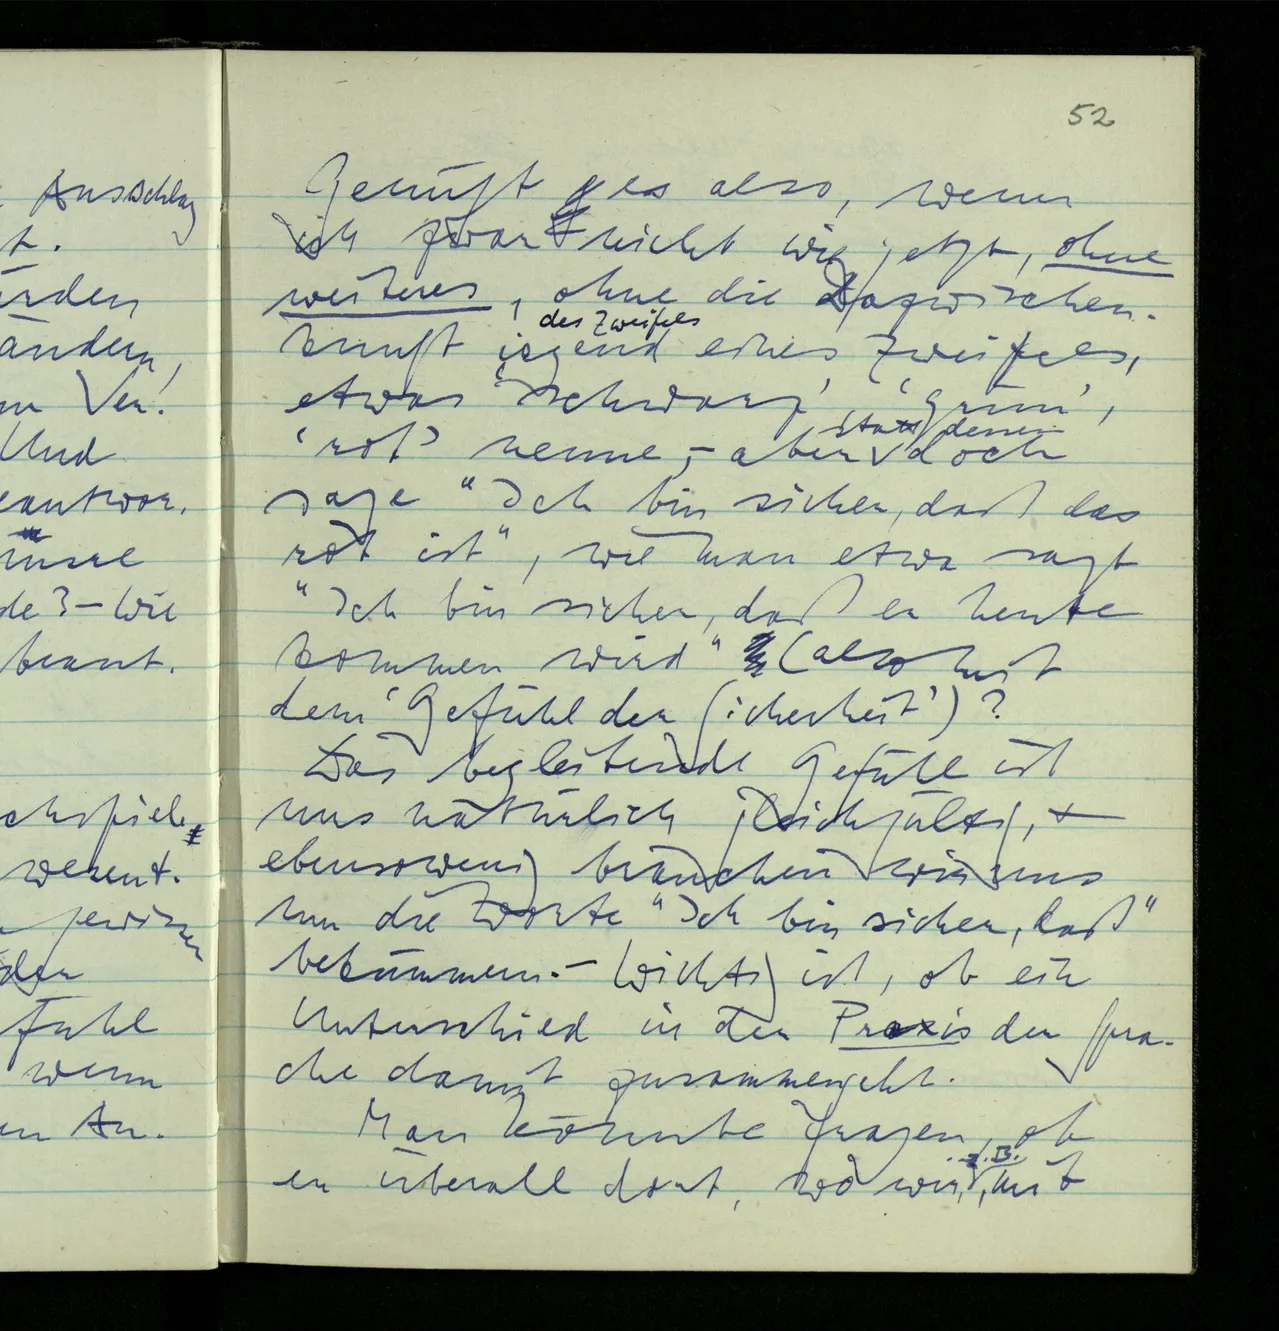 Ausschlag
t.
ändern,
Ver!
Und
eantwor.
de? – Wie
beant.
chspiele
wesent.
gewissen
der
fühl
wenn
en An.
52
Genügt es also, wenn
ich zwar nicht wie jetzt, ohne
weiteres, ohne die Dazwischen-
des Zweifels
kunft irgend eines Zweifels,
etwas 'schwarz', 'grün',
statt dessen
'rot' nenne, – aber doch
sage "Ich bin sicher, daß das
rot ist", wie man etwa sagt
"Ich bin sicher, daß er heute
kommen wird" (also mit
dem 'Gefühl der Sicherheit')?
Das begleitende Gefühl ist
uns natürlich gleichgültig, +
ebensowenig brauchen wir uns
um die Worte "Ich bin sicher, daß"
bekümmern. – Wichtig ist, ob ein
Unterschied in der Praxis der Spra-
che damit zusammengeht.
Man könnte fragen, ob
z.B.
er überall dort, wo wir, mit